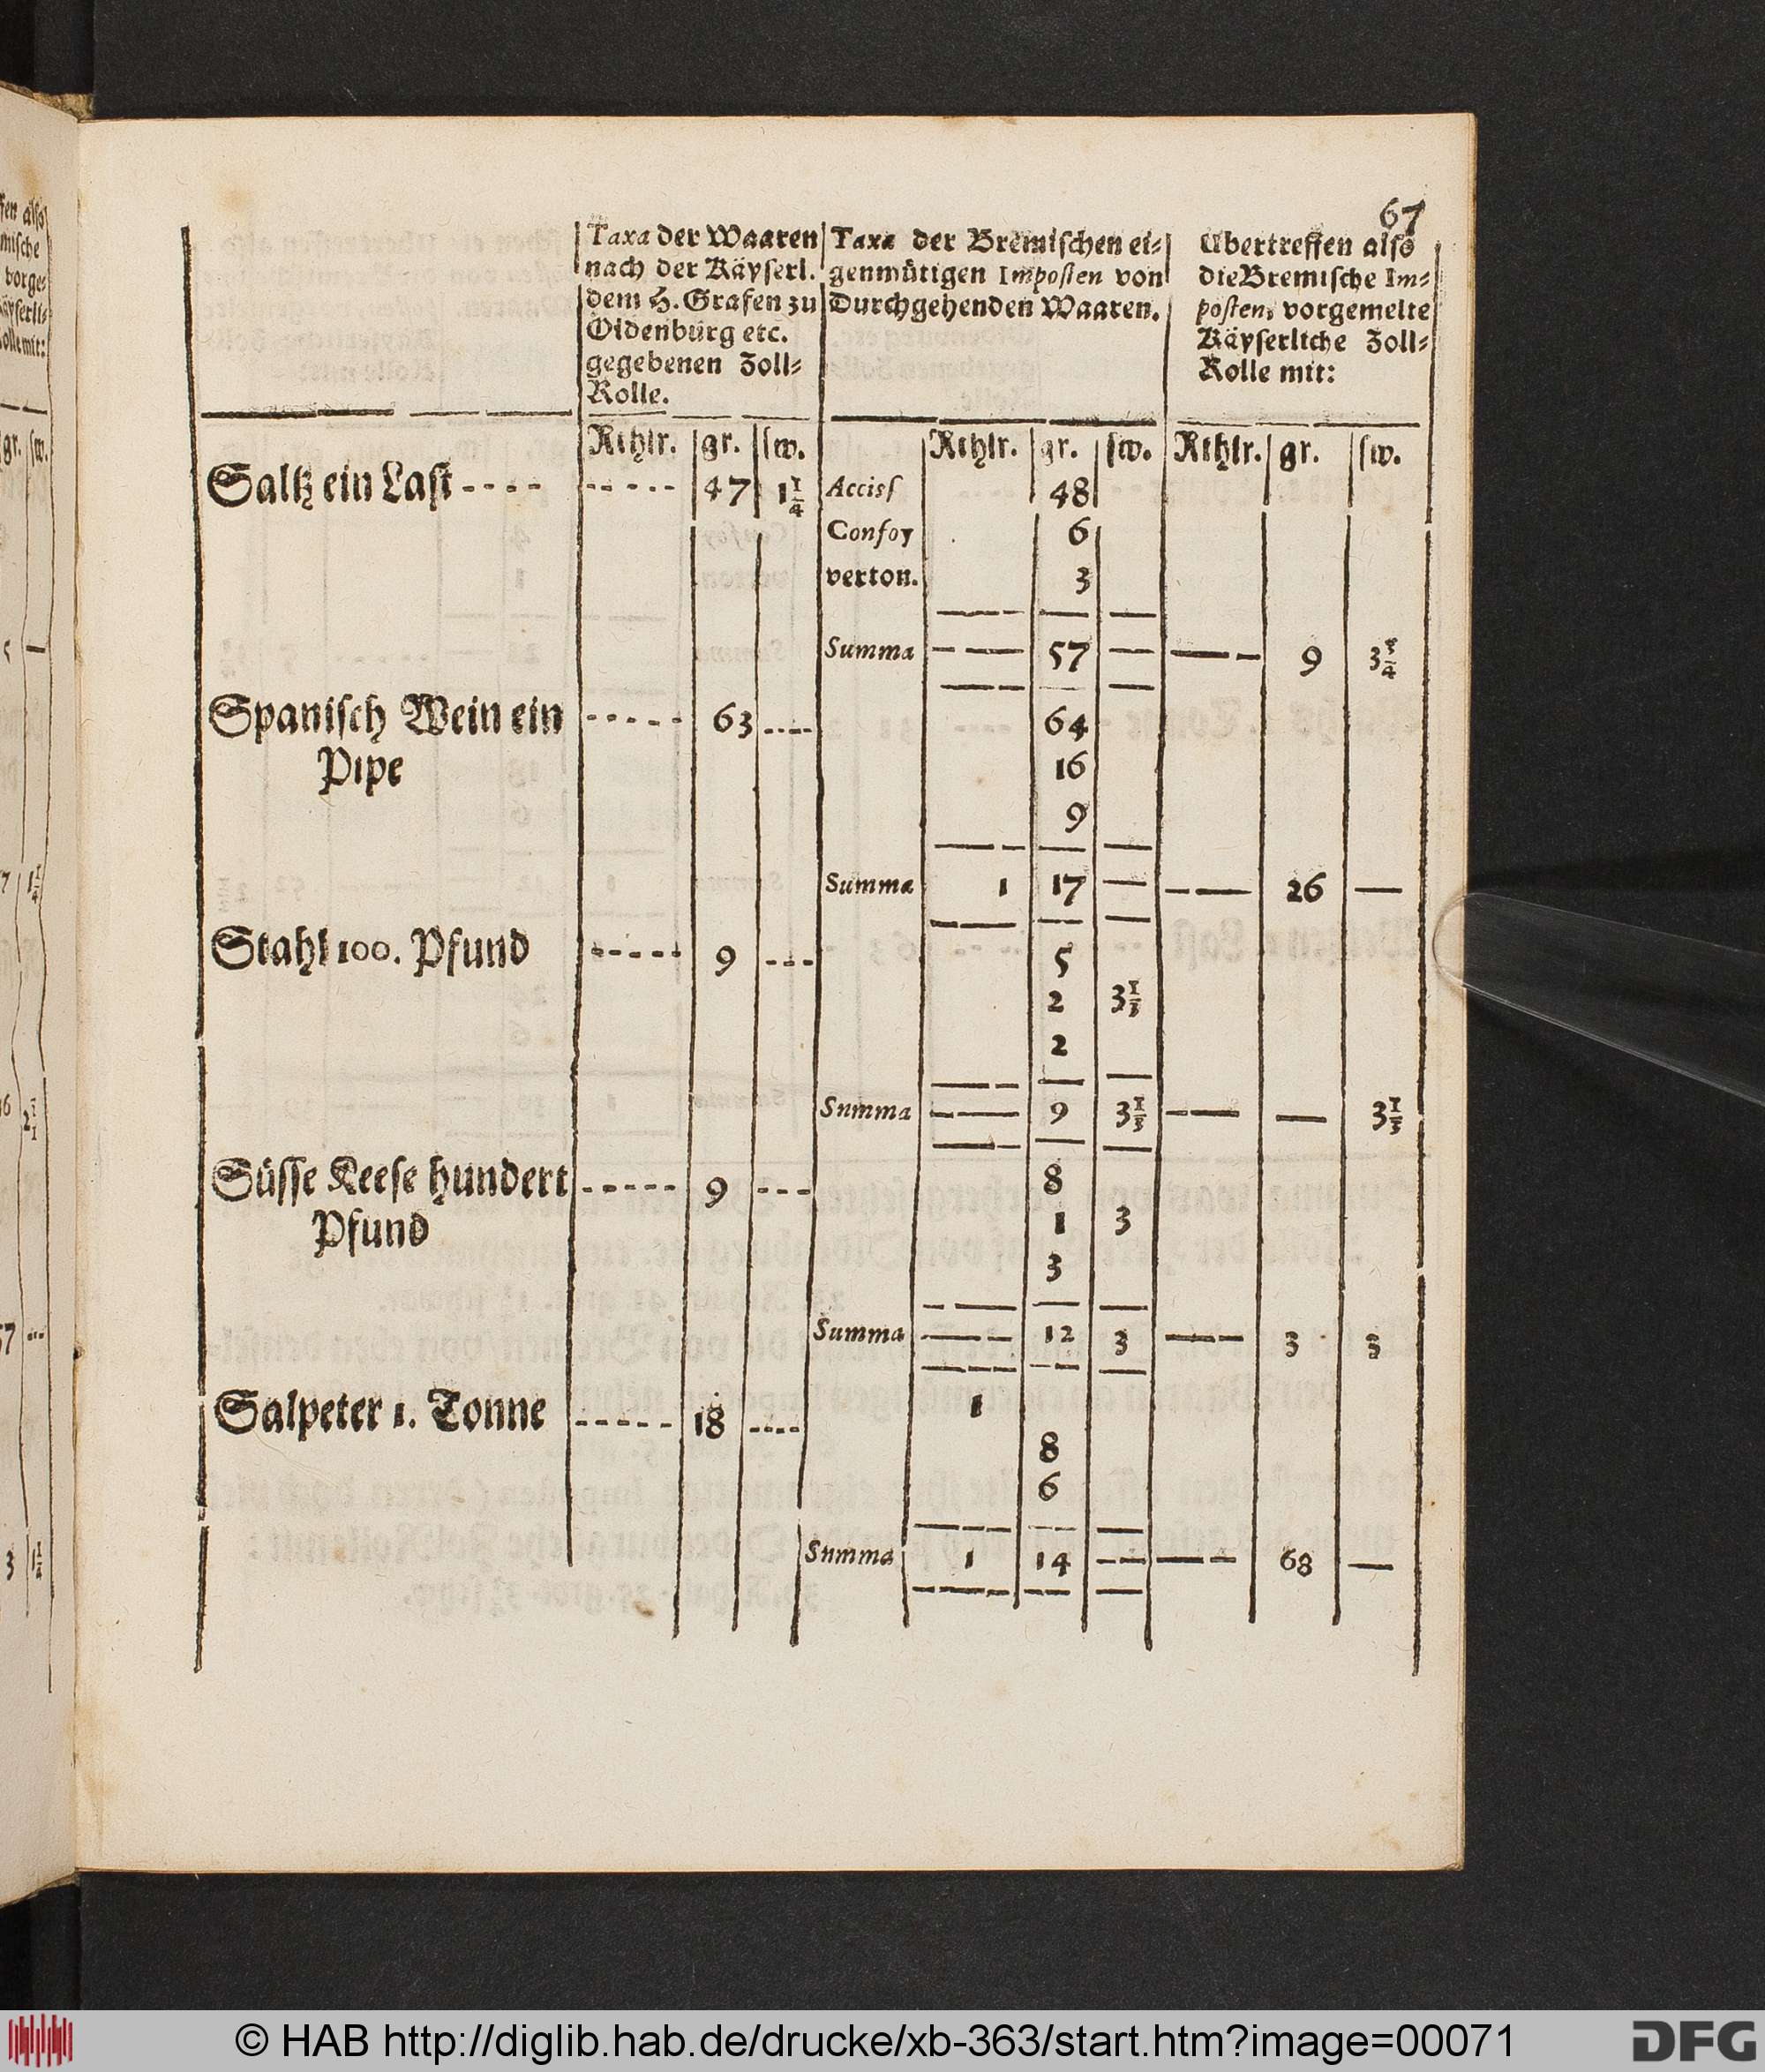 67
Taxa der Waaren
nach der Käyserl.
dem H. Grafen zu
Oldenburg etc.
gegebenen Zoll-
Rolle.
Taxa der Bremischen ei-
genmütigen Imposten von
Durchgehenden Waaren.
Ubertreffen also
die Bremische Im-
posten, vorgemelte
Käyserliche Zoll-
Rolle mit:
Rthlr. gr. sw. Rthlr. gr. sw. Rthlr. gr. sw.
Saltz ein Last ---- ----- 47 1 1/4 Acciss 48
Confoy 6
verton. 3
Summa — — 57 — — - 9 3 3/4
Spanisch Wein ein ----- 63 ---- 64
Pipe 16
9
Summa 1 17 — - — 26 —
Stahl 100. Pfund ----- 9 --- 5
2 3 1/3
2
Summa - — 9 3 1/3 - — — 3 1/3
Süsse Keese hundert ----- 9 --- 8
Pfund 1 3
3
Summa — - 12 3 — - 3 3
Salpeter 1. Tonne ----- 18 ---- 1
8
6
Summa 1 14 -- — - 68 —
fen also
mische
vorge-
äyserli-
olle mit:
gr. sw.
5 —
7 1 1/4
6
57 ---
3
© HAB http://diglib.hab.de/drucke/xb-363/start.htm?image=00071
DFG